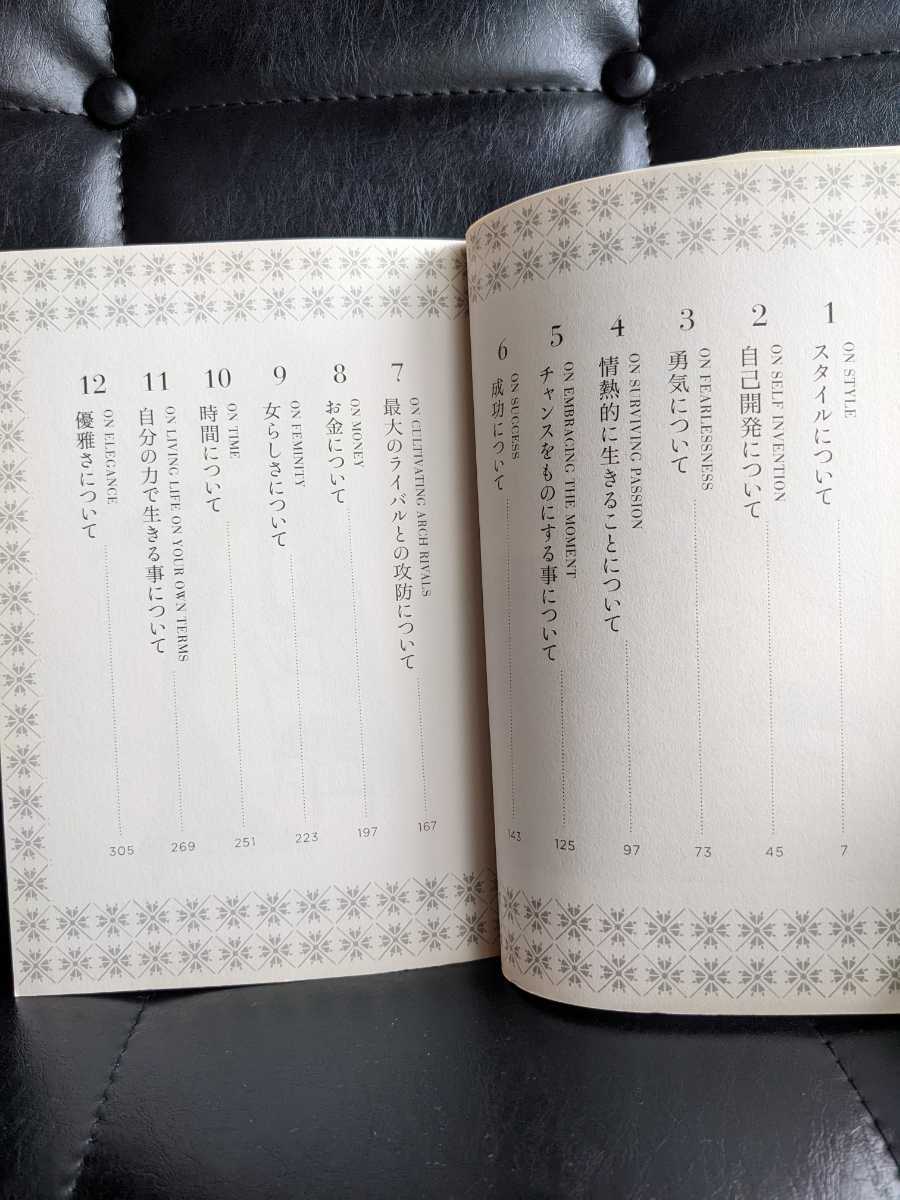 1
スタイルについて
ON STYLE
7
2
自己開発について
ON SELF INVENTION
45
3
勇気について
ON FEARLESSNESS
73
4
情熱的に生きることについて
ON SURVIVING PASSION
97
5
チャンスをものにする事について
ON EMBRACING THE MOMENT
125
6
成功について
ON SUCCESS
143
7
最大のライバルとの攻防について
ON CULTIVATING ARCH RIVALS
167
8
お金について
ON MONEY
197
9
女らしさについて
ON FEMINITY
223
10
時間について
ON TIME
251
11
自分の力で生きる事について
ON LIVING LIFE ON YOUR OWN TERMS
269
12
優雅さについて
ON ELEGANCE
305